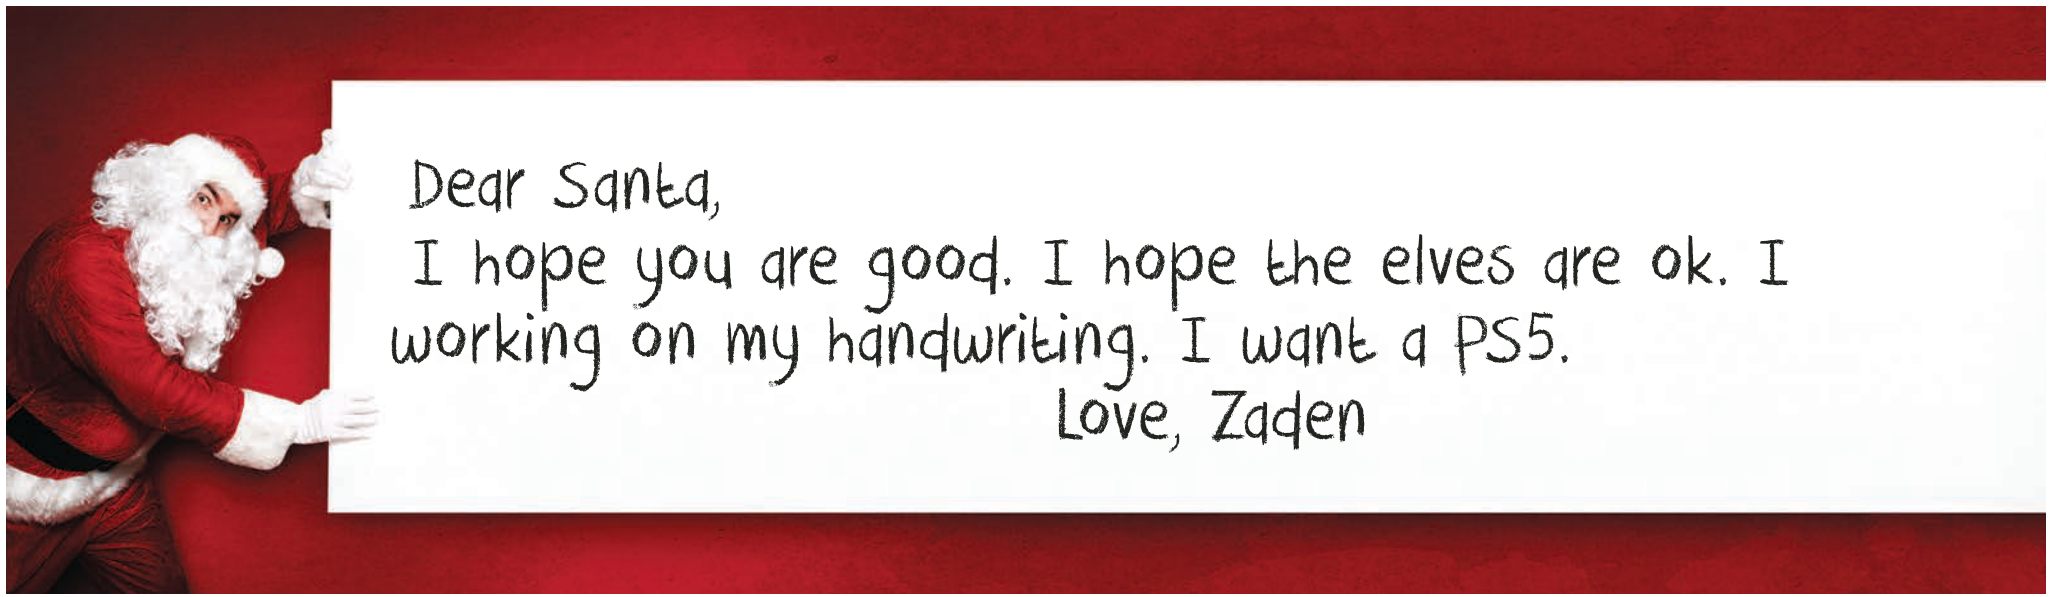 Dear Santa,
I hope you are good. I hope the elves are ok. I
working on my handwriting. I want a PS5.
Love, Zaden